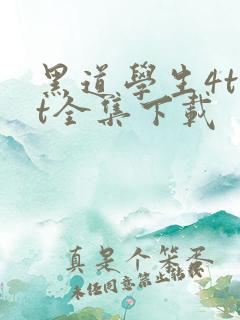 黑道學生4t
t全集下載
真是个笨蛋
未经同意禁止转载